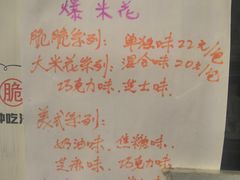 爆米花
脆脆系列: 单独味22元/包
大米花系列: 混合味20元/包
巧克力味、芝士味
美式系列:
奶油味、焦糖味、
芝麻味、巧克力味、
脆
种吃法